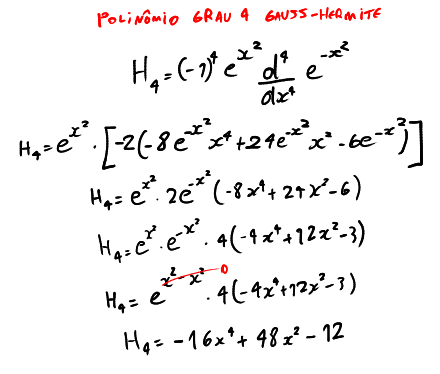 POLINÔMIO GRAU 4 GAUSS-HERMITE
H₄=(-1)⁴ e^{x²} d⁴/dx⁴ e^{-x²}
H₄=e^{x²}·[-2(-8e^{-x²}x⁴+24e^{-x²}x²-6e^{-x²})]
H₄=e^{x²}·2e^{-x²}(-8x⁴+24x²-6)
H₄=e^{x²}·e^{-x²}·4(-4x⁴+12x²-3)
H₄=e^{x²-x²}⁰·4(-4x⁴+12x²-3)
H₄=-16x⁴+48x²-12